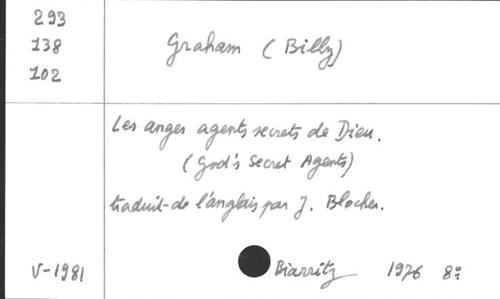 293
138
102
Graham (Billy)
Les anges agents secrets de Dieu.
(God's Secret Agents)
traduit de l'anglais par J. Blocher.
V-1981
Biarritz 1976 8º